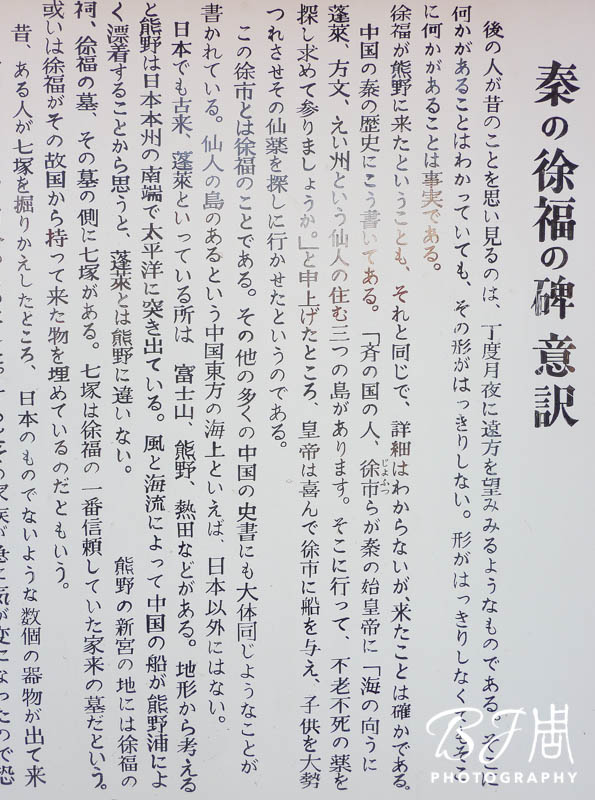 秦の徐福の碑 意訳
後の人が昔のことを思い見るのは、丁度月夜に遠方を望みみるようなものである。そこに
何かがあることはわかっていても、その形がはっきりしない。形がはっきりしなくてもそこ
に何かがあることは事実である。
徐福が熊野に来たということも、それと同じで、詳細はわからないが、来たことは確かである。
中国の秦の歴史にこう書いてある。「斉の国の人、徐市らが秦の始皇帝に「海の向うに
じょふつ
蓬萊、方文、えい州という仙人の住む三つの島があります。そこに行って、不老不死の薬を
探し求めて参りましょうか。」と申上げたところ、皇帝は喜んで徐市に船を与え、子供を大勢
つれさせその仙薬を探しに行かせたというのである。
この徐市とは徐福のことである。その他の多くの中国の史書にも大体同じようなことが
書かれている。仙人の島のあるという中国東方の海上といえば、日本以外にはない。
日本でも古来、蓬萊といっている所は 富士山、熊野、熱田などがある。地形から考える
と熊野は日本本州の南端で太平洋に突き出ている。風と海流によって中国の船が熊野浦によ
く漂着することから思うと、蓬萊とは熊野に違いない。 熊野の新宮の地には徐福の
祠、徐福の墓、その墓の側に七塚がある。七塚は徐福の一番信頼していた家来の墓だという。
或いは徐福がその故国から持って来た物を埋めているのだともいう。
昔、ある人が七塚を掘りかえしたところ、日本のものでないような数個の器物が出て来
BJ周
PHOTOGRAPHY